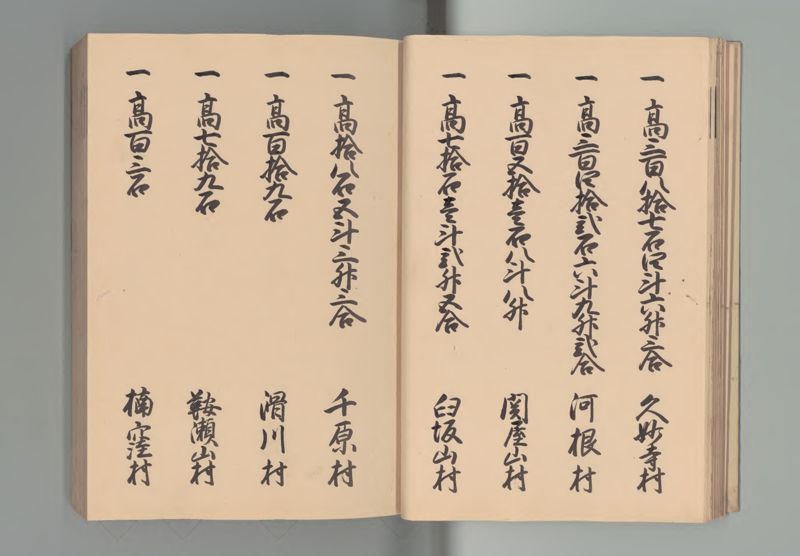 一 高三百八拾七石四斗六升三合 久妙寺村
一 高三百四拾弐石六斗九升弐合 河根村
一 高百五拾壱石八斗八升 関屋山村
一 高七拾石壱斗弐升五合 臼坂山村
一 高拾八石五斗三升三合 千原村
一 高百拾九石 滑川村
一 高七拾九石 鞍瀬山村
一 高百三石 楠窪村